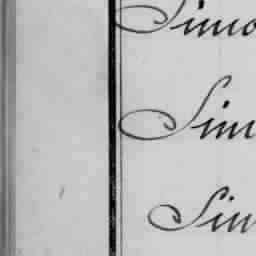 Simo
Sim
Sim